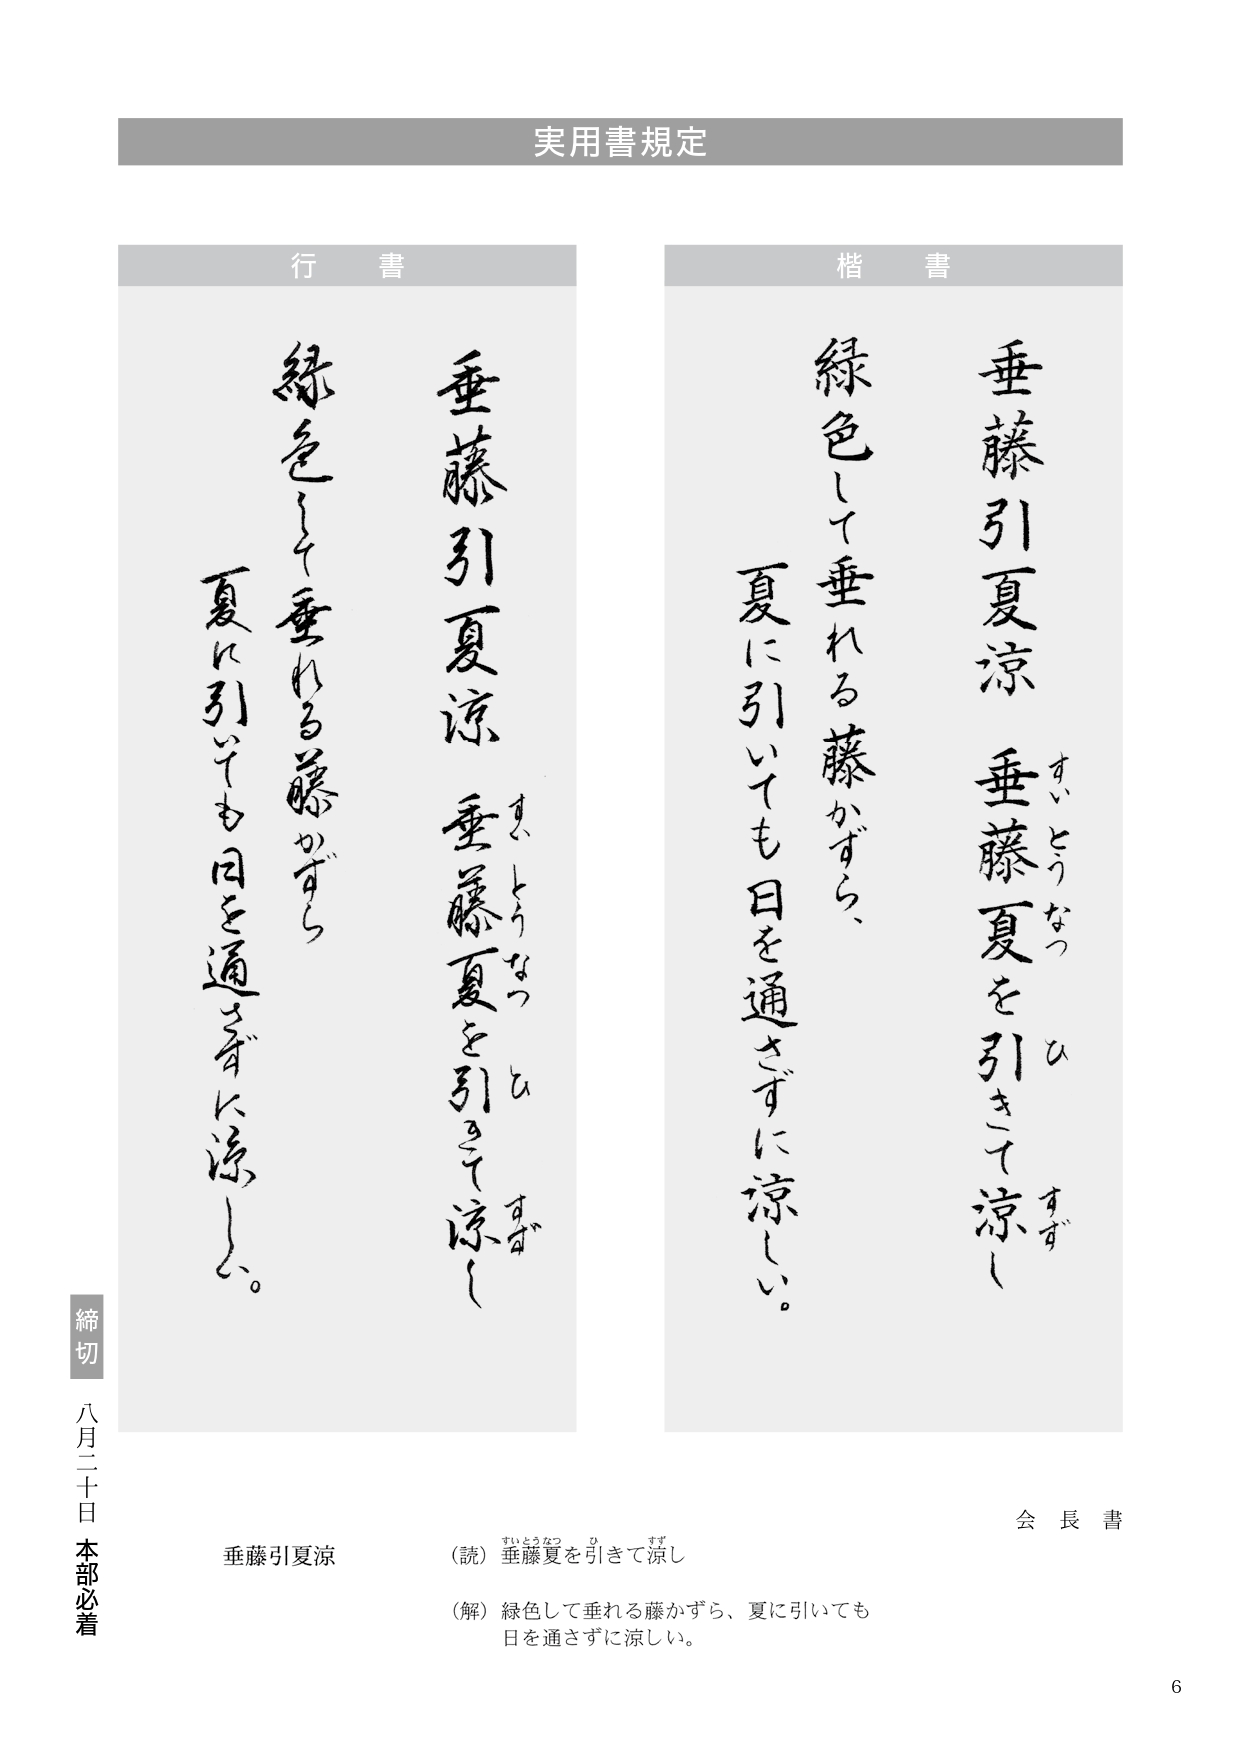 実用書規定
楷書
垂藤引夏涼 垂藤夏を引きて涼し
すい とう なつ ひ すず
緑色して垂れる藤かずら、
夏に引いても日を通さずに涼しい。
行書
垂藤引夏涼 垂藤夏を引きて涼し
すい とう なつ ひ すず
緑色して垂れる藤かずら
夏に引いても日を通さずに涼しい。
会長書
垂藤引夏涼
すいとうなつ ひ すず
（読）垂藤夏を引きて涼し
（解）緑色して垂れる藤かずら、夏に引いても
日を通さずに涼しい。
締切 八月二十日 本部必着
6